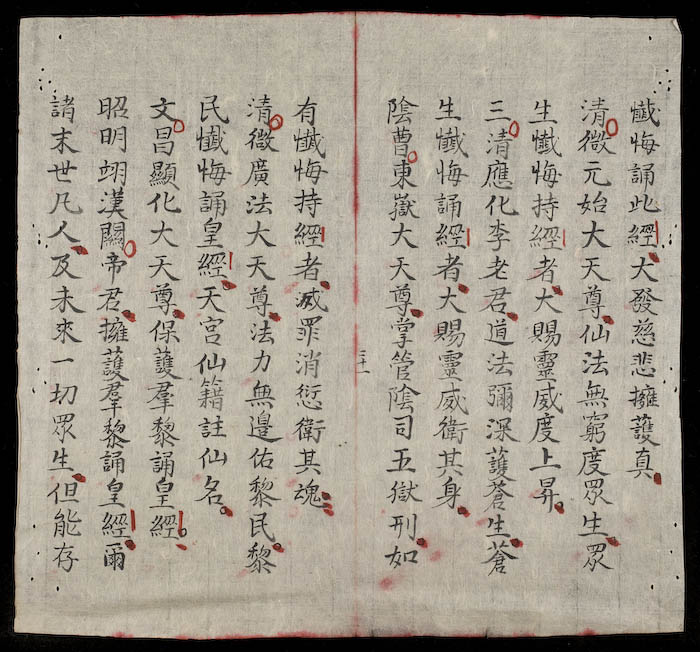 懴悔誦此經大發慈悲擁護真
清微元始大天尊仙法無窮度眾生眾
生懴悔持經者大賜靈威度上昇
三清應化李老君道法彌深護蒼生蒼
生懴悔誦經者大賜靈威衛其身
陰曹東嶽大天尊掌管陰司五獄刑如
二十一
有懴悔持經者滅罪消愆衛其魂
清微廣法大天尊法力無邊佑黎民黎
民懴悔誦皇經天宮仙籍註仙名
文昌顯化大天尊保護羣黎誦皇經
昭明翊漢關帝君擁護羣黎誦皇經爾
諸末世凡人及未來一切眾生但能存